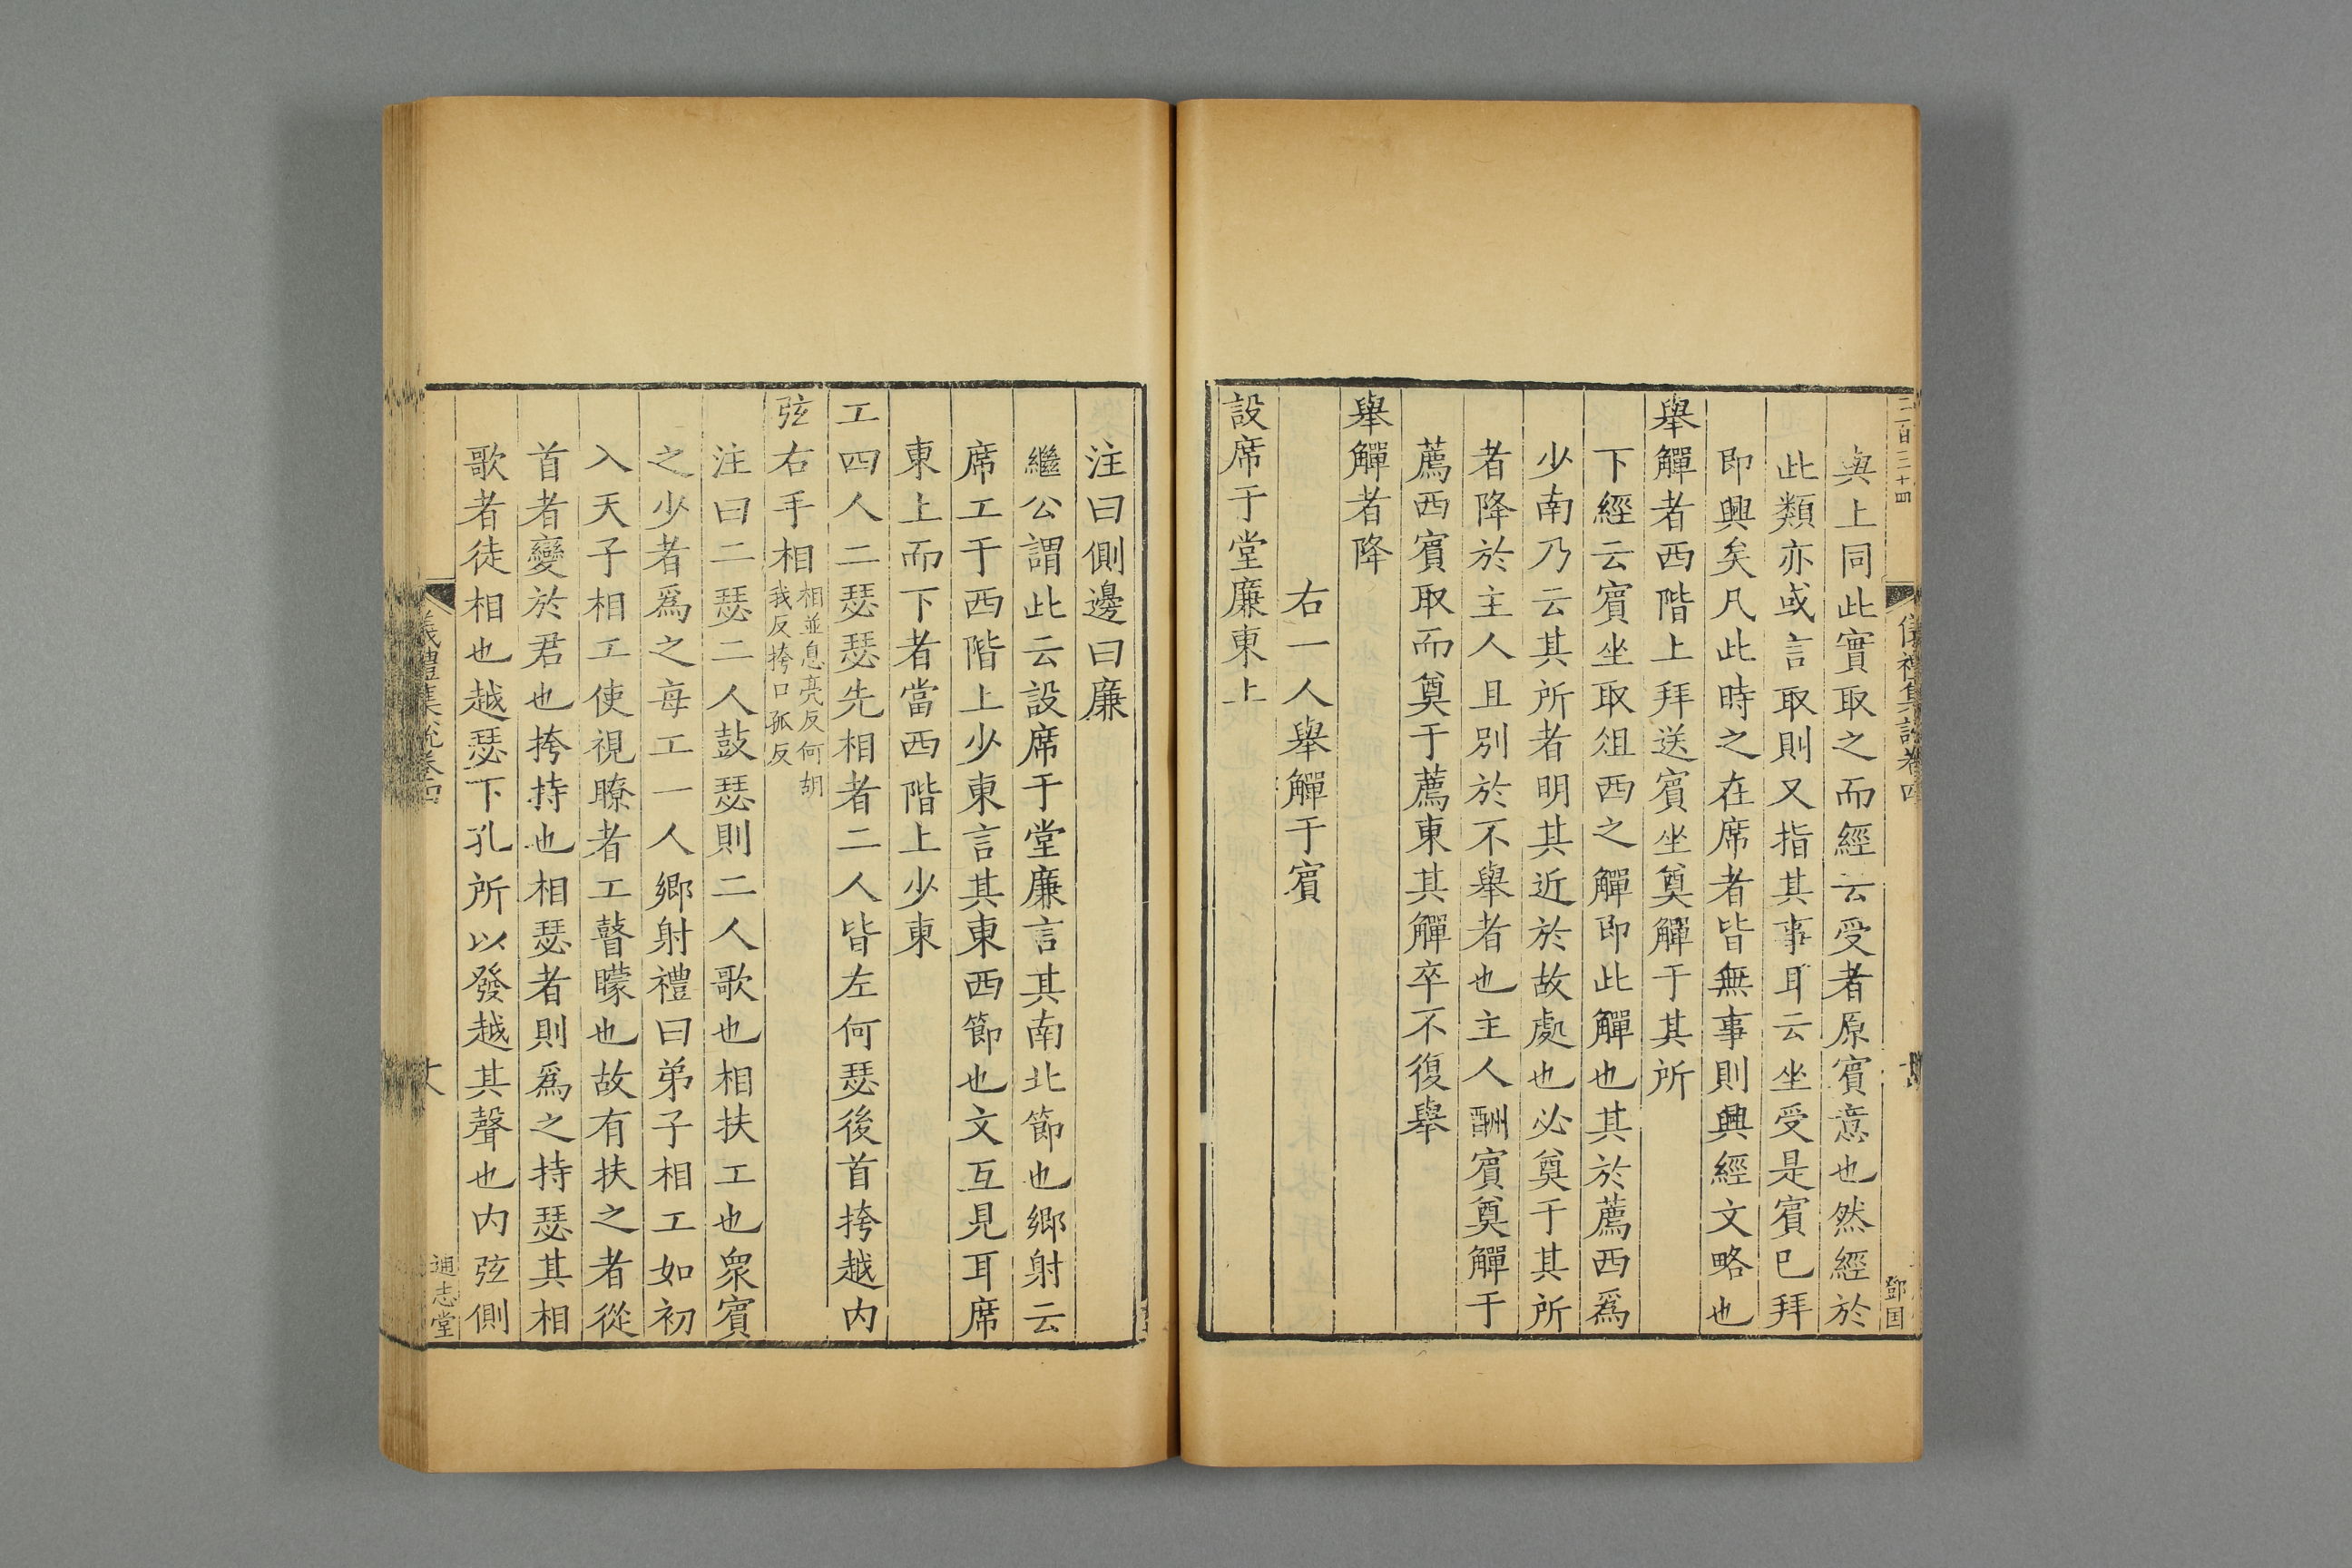 二百三十四
儀禮集說卷四
鄧国
與上同此實取之而經云受者原賓意也然經於
此類亦或言取則又指其事耳云坐受是賓已拜
即興矣凡此時之在席者皆無事則興經文略也
舉觶者西階上拜送賓坐奠觶于其所
下經云賓坐取俎西之觶即此觶也其於薦西爲
少南乃云其所者明其近於故處也必奠于其所
者降於主人且別於不舉者也主人酬賓奠觶于
薦西賓取而奠于薦東其觶卒不復舉
舉觶者降
右一人舉觶于賓
設席于堂廉東上
注曰側邊曰廉
繼公謂此云設席于堂廉言其南北節也鄉射云
席工于西階上少東言其東西節也文互見耳席
東上而下者當西階上少東
工四人二瑟瑟先相者二人皆左何瑟後首挎越内
弦右手相相並息亮反何胡
我反挎口孤反
注曰二瑟二人鼓瑟則二人歌也相扶工也衆賓
之少者爲之每工一人鄉射禮曰弟子相工如初
入天子相工使視瞭者工瞽矇也故有扶之者從
首者變於君也挎持也相瑟者則爲之持瑟其相
歌者徒相也越瑟下孔所以發越其聲也内弦側
儀禮集說卷四
通志堂